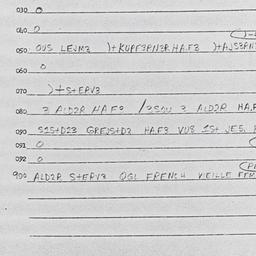 030 0
040 0
050 OUS LEJM3 )+KUPF3PN3R HA.F3 )+AJS3PN
060 0
070 )+S+EPV3
080 3 ALD2R HA.F3 /3SOU 3 ALD2R HA.F
090 S1S+D23 GREJS+D2 HA.F3 VU8 1S+ JES.
091 0
092 0
900 ALD2R S+ERV3 OGL FRENCH VIEILLE FER